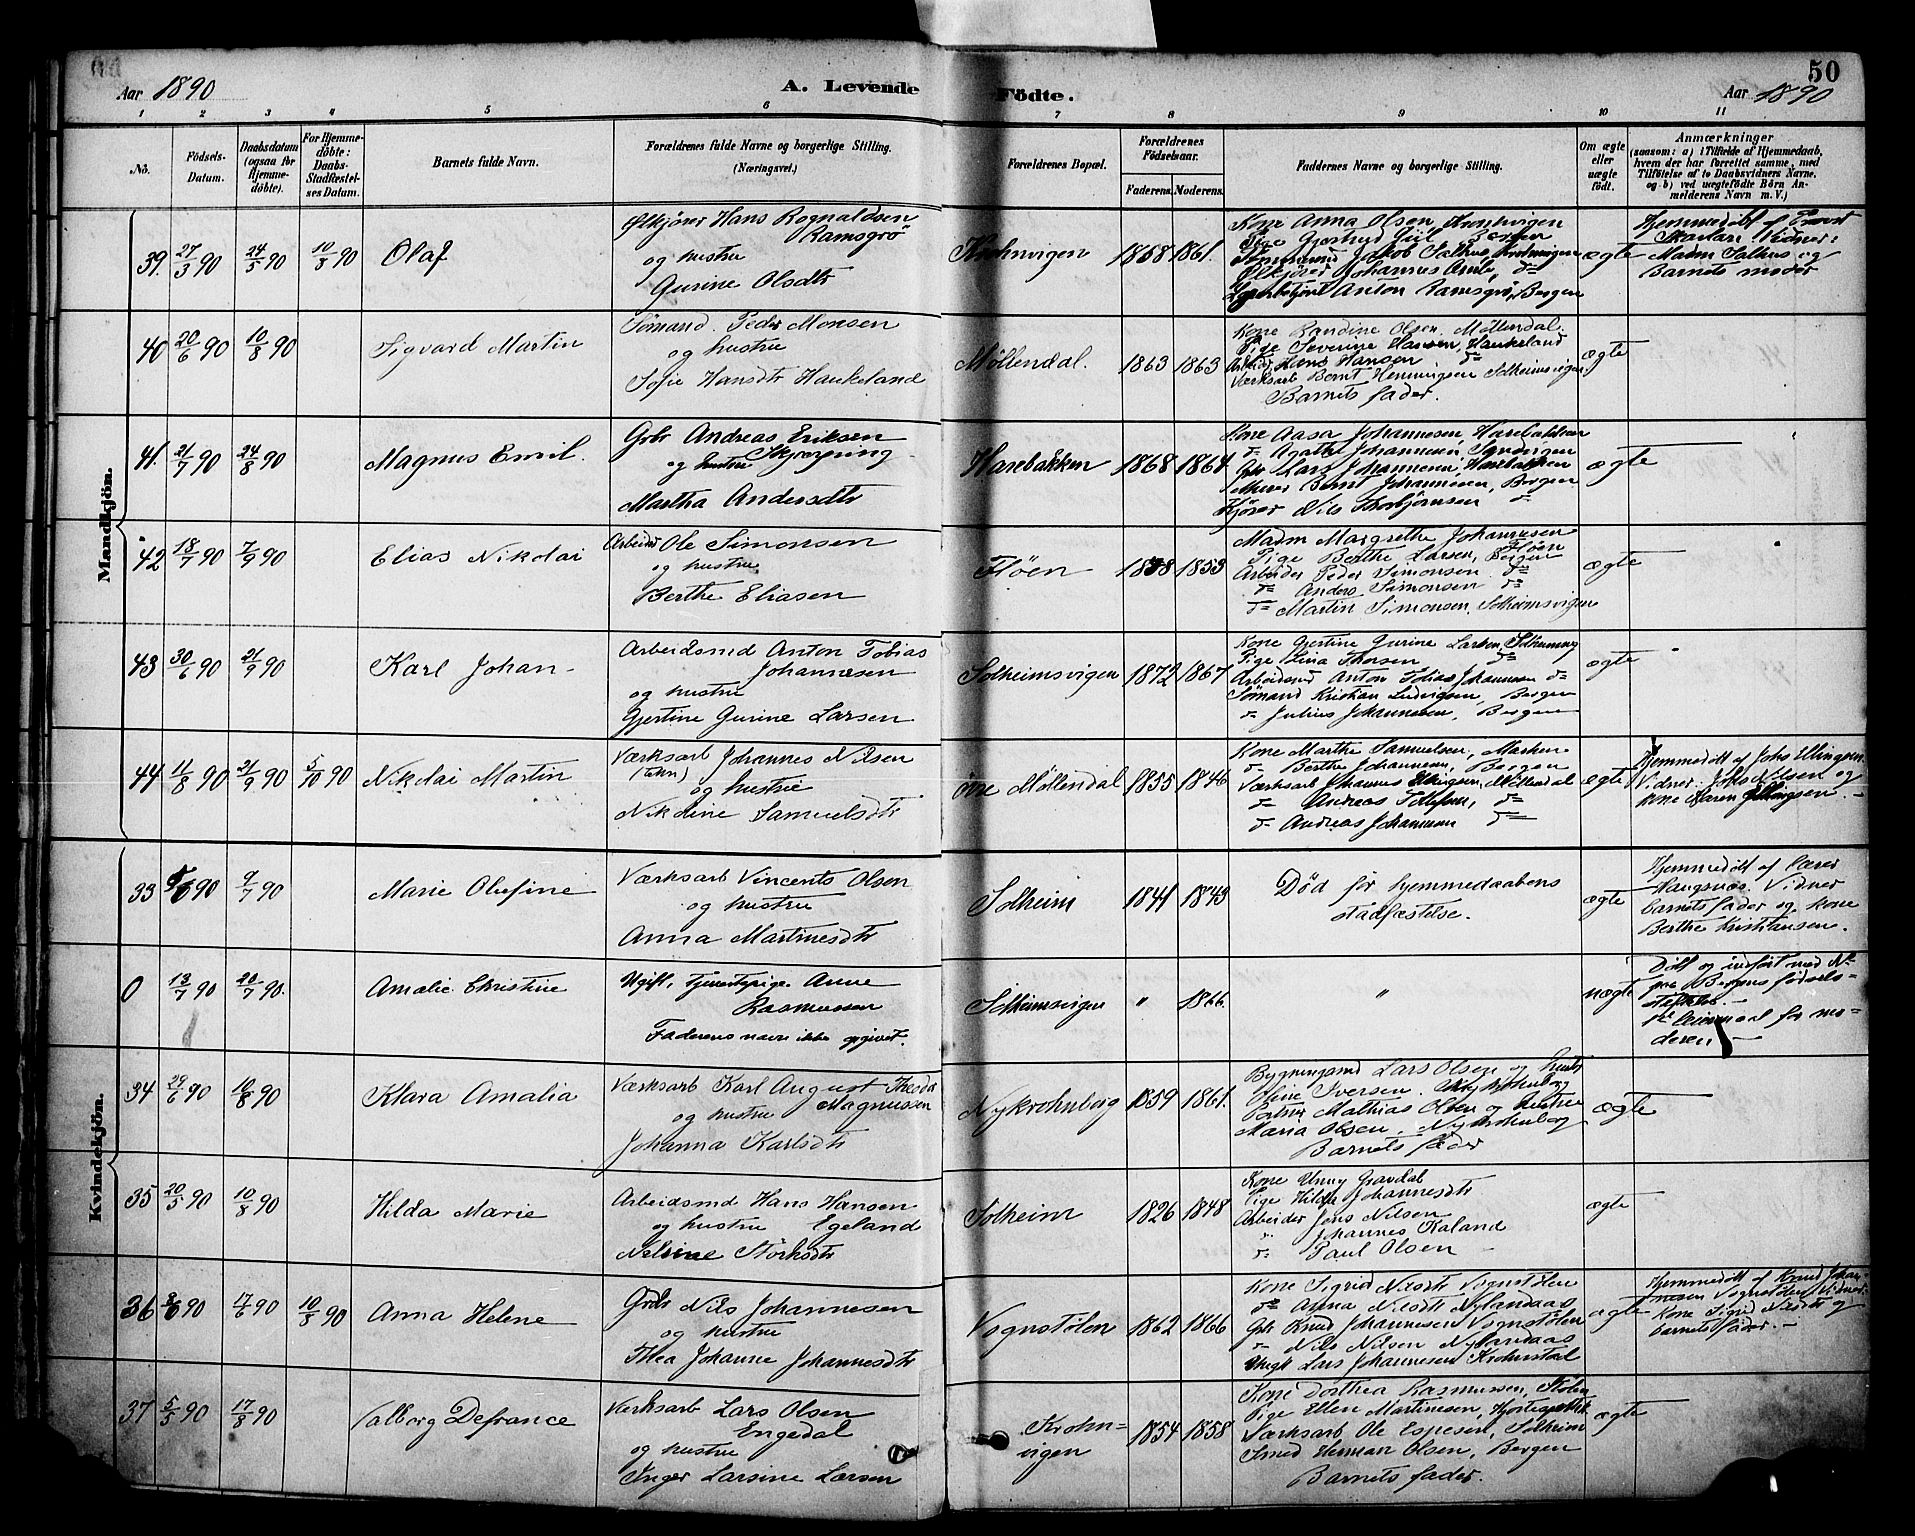 50
Aar 1890
A. Levende Fødte.
Aar 1890
1 2 3 4 5 6 7 8 9 10 11
No.
Födsels-Datum.
Daabsdatum (ogsaa for Hjemme-döbte).
For Hjemme-döbte: Daabs-Stadfæstel-ses Datum.
Barnets fulde Navn.
Forældrenes fulde Navne og borgerlige Stilling.
(Næringsvei.)
Forældrenes Bopæl.
Forældrenes Födselsaar.
Faderens. Moderens.
Faddernes Navne og borgerlige Stilling.
Om ægte eller uægte födt.
Anmærkninger
(saasom: a) i Tilfælde af Hjemmedaab, hvem der har forrettet samme, med Tilföielse af to Daabsvidners Navne, og b) ved uegtefödte Börn An-melderens Navn m.V.)
Mandkjön.
39. 27/3 90 24/5 90 10/8 90 Olaf
Ølkjører Hans Rognaldsen
Ramsgrö
og hustru
Gurine Olsdtr
Krohnvigen 1858 1861.
Kone Anna Olsen Krohnvigen
Pige Gjertrud
Jakob Salhus, Krohnvigen
Ølkjører Johannes
Anton Ramsgrö, Bergen
ægte
Hjemmedöbt af
Vidner:
Madm Salhus og
Barnets moder
40 20/6 90 10/8 90 Sigvard Martin
Sömand. Peder Monsen
og hustru
Sofie Hansdtr Haukeland
Möllendal. 1863 1863
Kone Randine Olsen. Möllendal.
Pige Severine Hansen, Haukeland
Arbeider Hans Hansen do
Værksarb Bernt Henningsen Solheimsvigen
Barnets fader.
ægte
41. 21/7 90 24/8 90 Magnus Emil.
Gbr Andreas Eriksen
Skjærping
og hustru
Martha Andersdtr
Harebakken 1868 1864.
Kone Aasa Johannesen, Harebakken
do Agathe Johannesen, Sandvigen
Gbr Lars Johannesen, Harebakken
Murer Bernt Johannesen, Bergen
Kjörer Nils Thorbjörnsen do
ægte
42 18/7 90 7/9 90 Elias Nikolai
Arbeider Ole Simonsen
og hustru
Berthe Eliasen
Flöen 1858 1853
Madm Margrethe Johannesen
Flöen
Pige Berthe Larsen, Bergen
Arbeider Peder Simonsen do
do Anders Simonsen do
do Martin Simonsen, Solheimsvigen
ægte
43 30/6 90 21/9 90 Karl Johan
Arbeidsmd Anton Tobias
Johannesen
og hustru
Gjertine Gurine Larsen
Solheimsvigen 1872 1867
Kone Gjertine Gurine Larsen, Solheimsvig
Pige Lina Thorsen do
Arbeidsmd Anton Tobias Johannesen do
Sömand Kristian Ludvigsen, Bergen
do Julius Johannesen, Bergen
ægte
44 11/8 90 21/9 90 5/10 90 Nikolai Martin
Værksarb Johannes Nilsen
og hustru
Nikoline Samuelsdtr
övre Möllendal 1855 1846
Kone Marthe Samuelsen, Marken
do Berthe Johannesen, Bergen
Værksarb Johannes Ellingsen, Möllendal
do Andreas Tollefsen, do
do Andreas Johannesen do
ægte
Hjemmedöbt af Johs Ellingsen
Vidner: Johs Nilsen og
kone Karen Ellingsen. –
Kvindekjön.
33 90 9/7 90 Marie Olufine
Værksarb Vincents Olsen
og hustru
Anna Martinesdtr
Solheim 1841 1843
Död för hjemmedaabens
stadfæstelse.
ægte
Hjemmedöbt af lærer
Haugsnæs. Vidner
barnets fader og kone
Berthe Kristiansen.
0 13/7 90 20/7 90. Amalie Christine
Ugift, tjenestepige Anne
Rasmussen
Faderens navn ikke opgivet.
Solheimsvigen " 1866.
"
uægte
Döbt og indfört med No
fra Bergens födsels-
stiftelse. –
1ste leiermaal for mo-
deren –
34 29/6 90 10/8 90 Klara Amalia
Værksarb Karl August Theodor
Magnussen
og hustru
Johanna Karlsdtr
Nykrohnborg 1859 1861.
Bygningsmd Lars Olsen og hustru
Oline Iversen. Nykrohnborg
Mathias Olsen og hustru
Maria Olsen, Nykrohnborg
Barnets fader
ægte
35 20/5 90 10/8 90 Hilda Marie
Arbeidsmd Hans Hansen
og hustru Egeland
Nelsine Störksdtr
Solheim 1826 1848
Kone Unny Gravdal
Pige Hilda Johannesdtr
Arbeider Jens Nilsen
" Johannes Kaland
do Paul Olsen
ægte
36 90 17/6 90 10/8 90 Anna Helene
Gbr Nils Johannesen
og hustru
Thea Johanne Johannesdtr
Vognstölen 1862 1866
Kone Sigrid Nilsdtr Vognstölen
do Anna Nilsdtr Nylandaas
Gbr Knud Johannesen Vognstölen
do Nils Nilsen Nylandaas
Ungk Lars Johannesen Krohnstad
ægte
Hjemmedöbt af Knud Johan-
nesen Vognstölen Vidner
Kone Sigrid Nilsdtr og
barnets fader. –
37 5/5 90 17/8 90 Valborg Defrance
Værksarb Lars Olsen
Engedal
og hustru
Inger Larsine Larsen
Krohn-
vigen
1854 1858
Kone Dorthea Rasmussen,
Pige Ellen Martinesen,
Værksarb Ole Espesen, Solheim
Smed Herman Olsen, Bergen
Barnets fader.
ægte